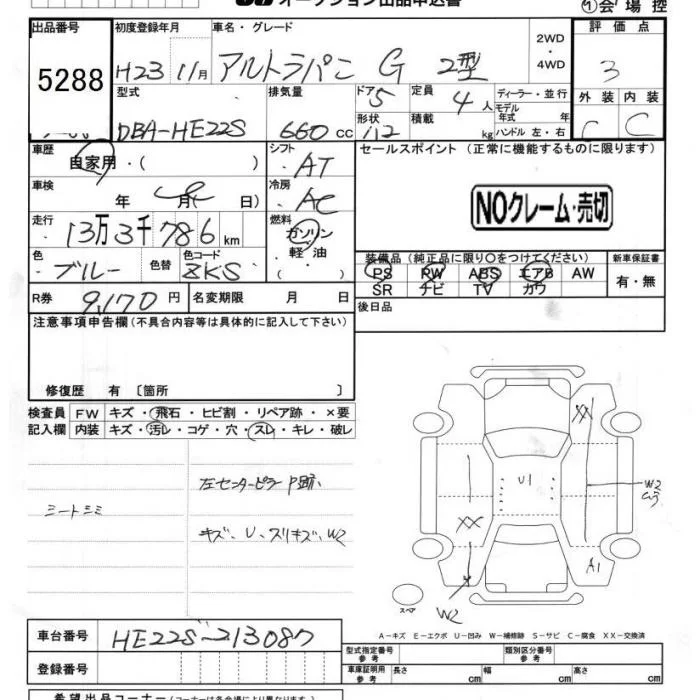 オークション出品申込書
①会場控
出品番号
5288
初度登録年月
H23 11月
車名・グレード
アルトラパン G 2型
2WD・4WD
評価点
3
外装 C
内装 C
型式
DBA-HE22S
排気量
660 cc
ドア 5
形状 112
定員 4人
積載 kg
ディーラー・並行
モデル年式 年
ハンドル 左・右
車歴
自家用・( )
シフト
AT
セールスポイント (正常に機能するものに限ります)
NOクレーム・売切
車検
年 月 日)
冷房
AC
走行
13万3千786 km
燃料
ガソリン
軽油
( )
色
ブルー
色替
色コード
ZKS
装備品 (純正品に限り○をつけてください)
PS PW ABS エアB AW
SR ナビ TV カワ
新車保証書
有・無
R券 9,170円
名変期限 月 日
後日品
注意事項申告欄 (不具合内容等は具体的に記入して下さい)
修復歴 有 〔箇所 〕
検査員記入欄
FW キズ・飛石・ヒビ割・リペア跡・×要
内装 キズ・汚レ・コゲ・穴・スレ・キレ・破レ
左センターピラーP跡
シートシミ
キズ、U、スリキズ、W2
XX
U1
W2
XX
A1
W2
スペア
A-キズ E-エクボ U-凹み W-補修跡 S-サビ C-腐食 XX-交換済
車台番号 HE22S-213087
登録番号
型式指定番号 参考
類別区分番号 参考
車庫証明用 参考 長さ cm 幅 cm 高さ cm
希望出品コーナー (コーナーは各会場により異なります)